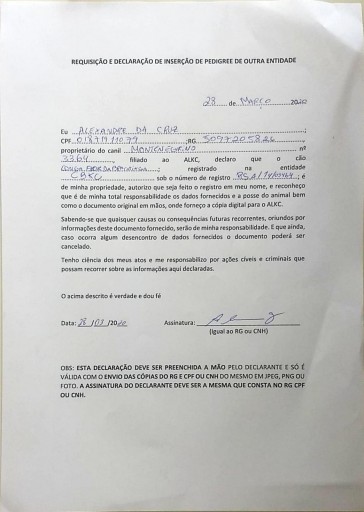 REQUISIÇÃO E DECLARAÇÃO DE INSERÇÃO DE PEDIGREE DE OUTRA ENTIDADE
28 de MARÇO 2020
Eu ALEXANDRE DA CRUZ ;
CPF ;RG ,
proprietário do canil MONTENEGRINO nº
3364, filiado ao ALKC, declaro que o cão
; registrado na entidade
CBKC sob o número de registro ; é
de minha propriedade, autorizo que seja feito o registro em meu nome, e reconheço
que é de minha total responsabilidade os dados fornecidos e a posse do animal bem
como o documento original em mãos, onde forneço a cópia digital para o ALKC.
Sabendo-se que quaisquer causas ou consequências futuras recorrentes, oriundos por
informações deste documento fornecido, serão de minha responsabilidade. E que ainda,
caso ocorra algum desencontro de dados fornecidos o documento poderá ser
cancelado.
Tenho ciência dos meus atos e me responsabilizo por ações cíveis e criminais que
possam recorrer sobre as informações aqui declaradas.
O acima descrito é verdade e dou fé
Data: 28/03/2020 Assinatura:
(Igual ao RG ou CNH)
OBS: ESTA DECLARAÇÃO DEVE SER PREENCHIDA A MÃO PELO DECLARANTE E SÓ É
VÁLIDA COM O ENVIO DAS CÓPIAS DO RG E CPF OU CNH DO MESMO EM JPEG, PNG OU
FOTO. A ASSINATURA DO DECLARANTE DEVE SER A MESMA QUE CONSTA NO RG CPF
OU CNH.